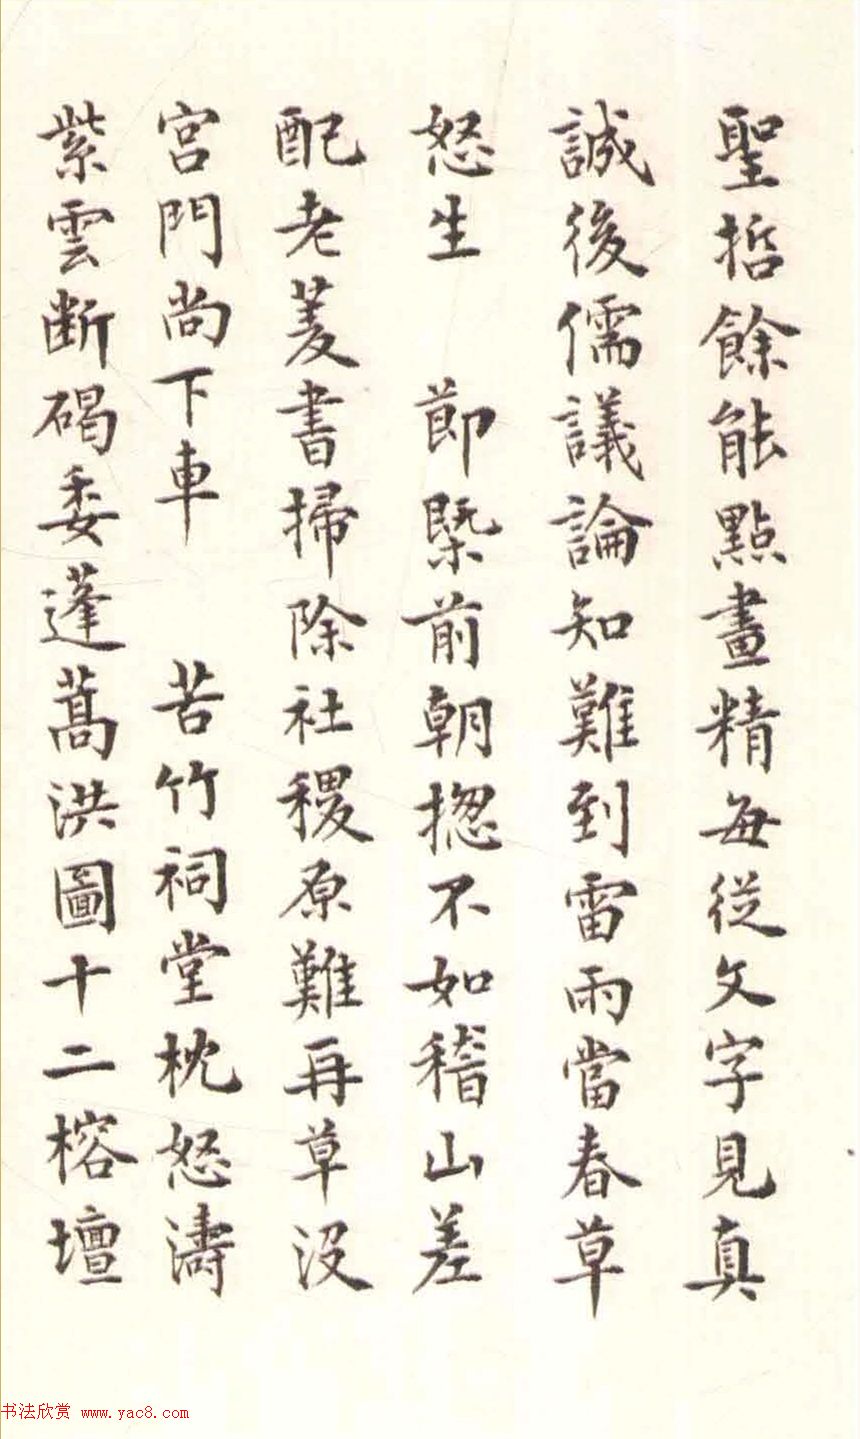 聖哲餘能點畫精每從文字見真
誠後儒議論知難到雷雨當春草
怒生 節槩前朝揔不如稽山差
配老書掃除社稷原難再草没
宮門尚下車 苦竹祠堂枕怒濤
紫雲断碣委蓬蒿洪圖十二榕壇
书法欣赏 www.yac8.com